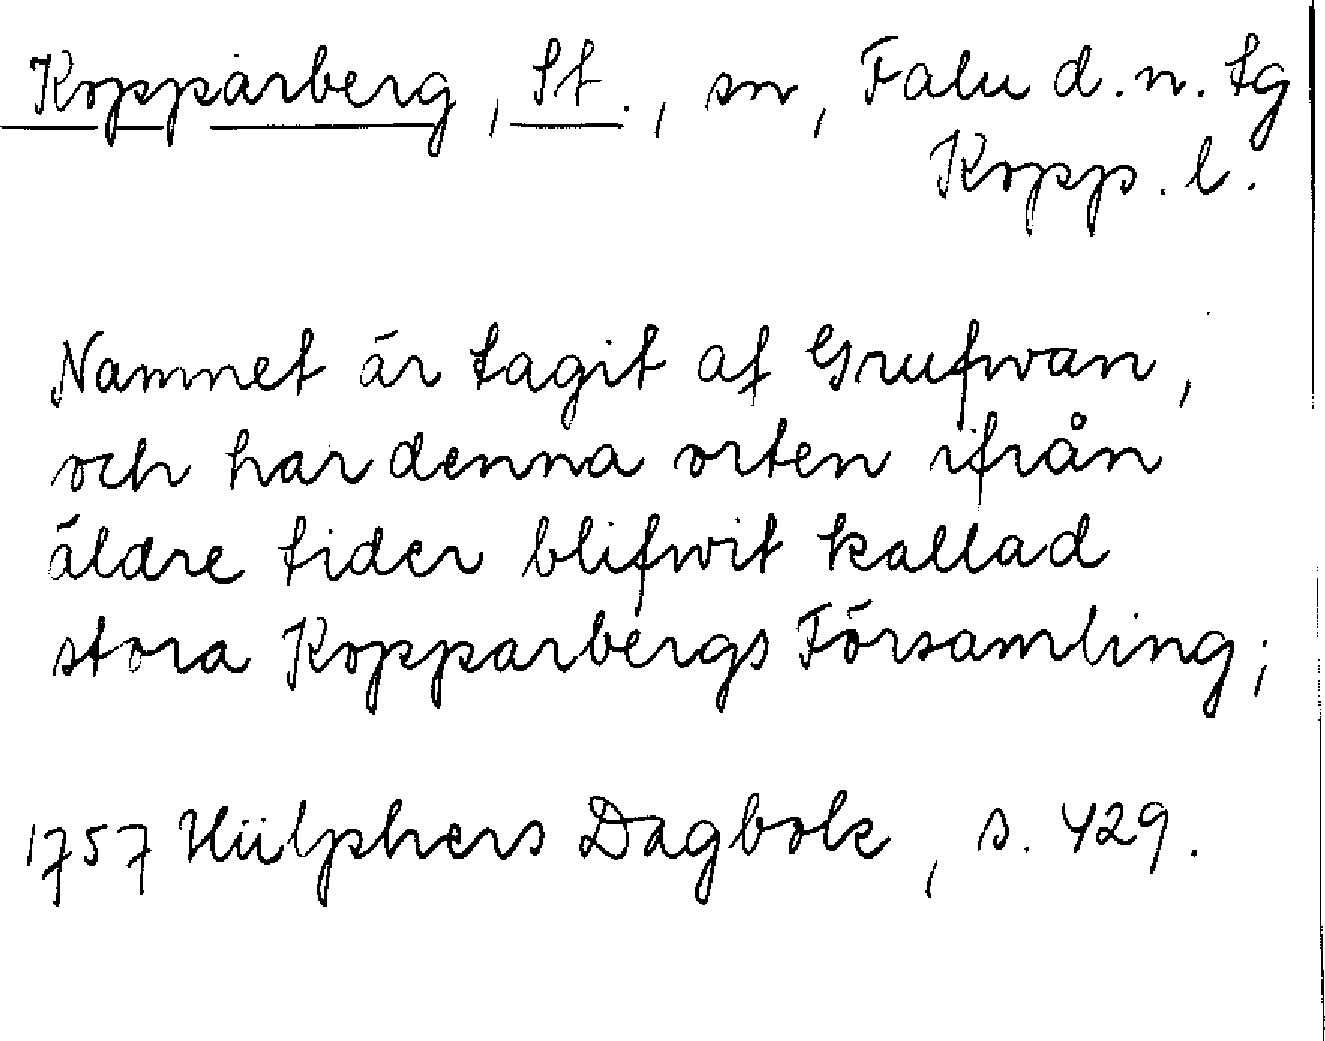 Kopparberg, St., sn, Falu d. n. tg
Kopp. l.
Namnet är tagit af Grufwan,
och har denna orten ifrån
äldre tider blifwit kallad
stora Kopparbergs Församling;
1757 Hülphers Dagbok, s. 429.